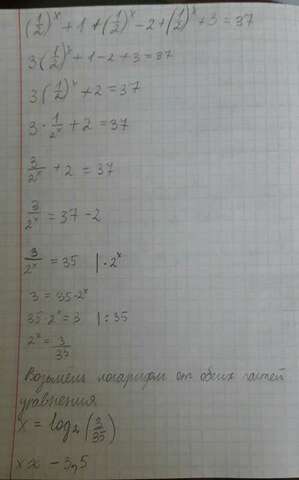 (1/2)^x + 1 + (1/2)^x - 2 + (1/2)^x + 3 = 37
3(1/2)^x + 1 - 2 + 3 = 37
3(1/2)^x + 2 = 37
3 · 1/2^x + 2 = 37
3/2^x + 2 = 37
3/2^x = 37 - 2
3/2^x = 35 | · 2^x
3 = 35 · 2^x
35 · 2^x = 3 | : 35
2^x = 3/35
Возьмем логарифм от обеих частей
уравнения
x = log₂(3/35)
x ≈ - 3,5